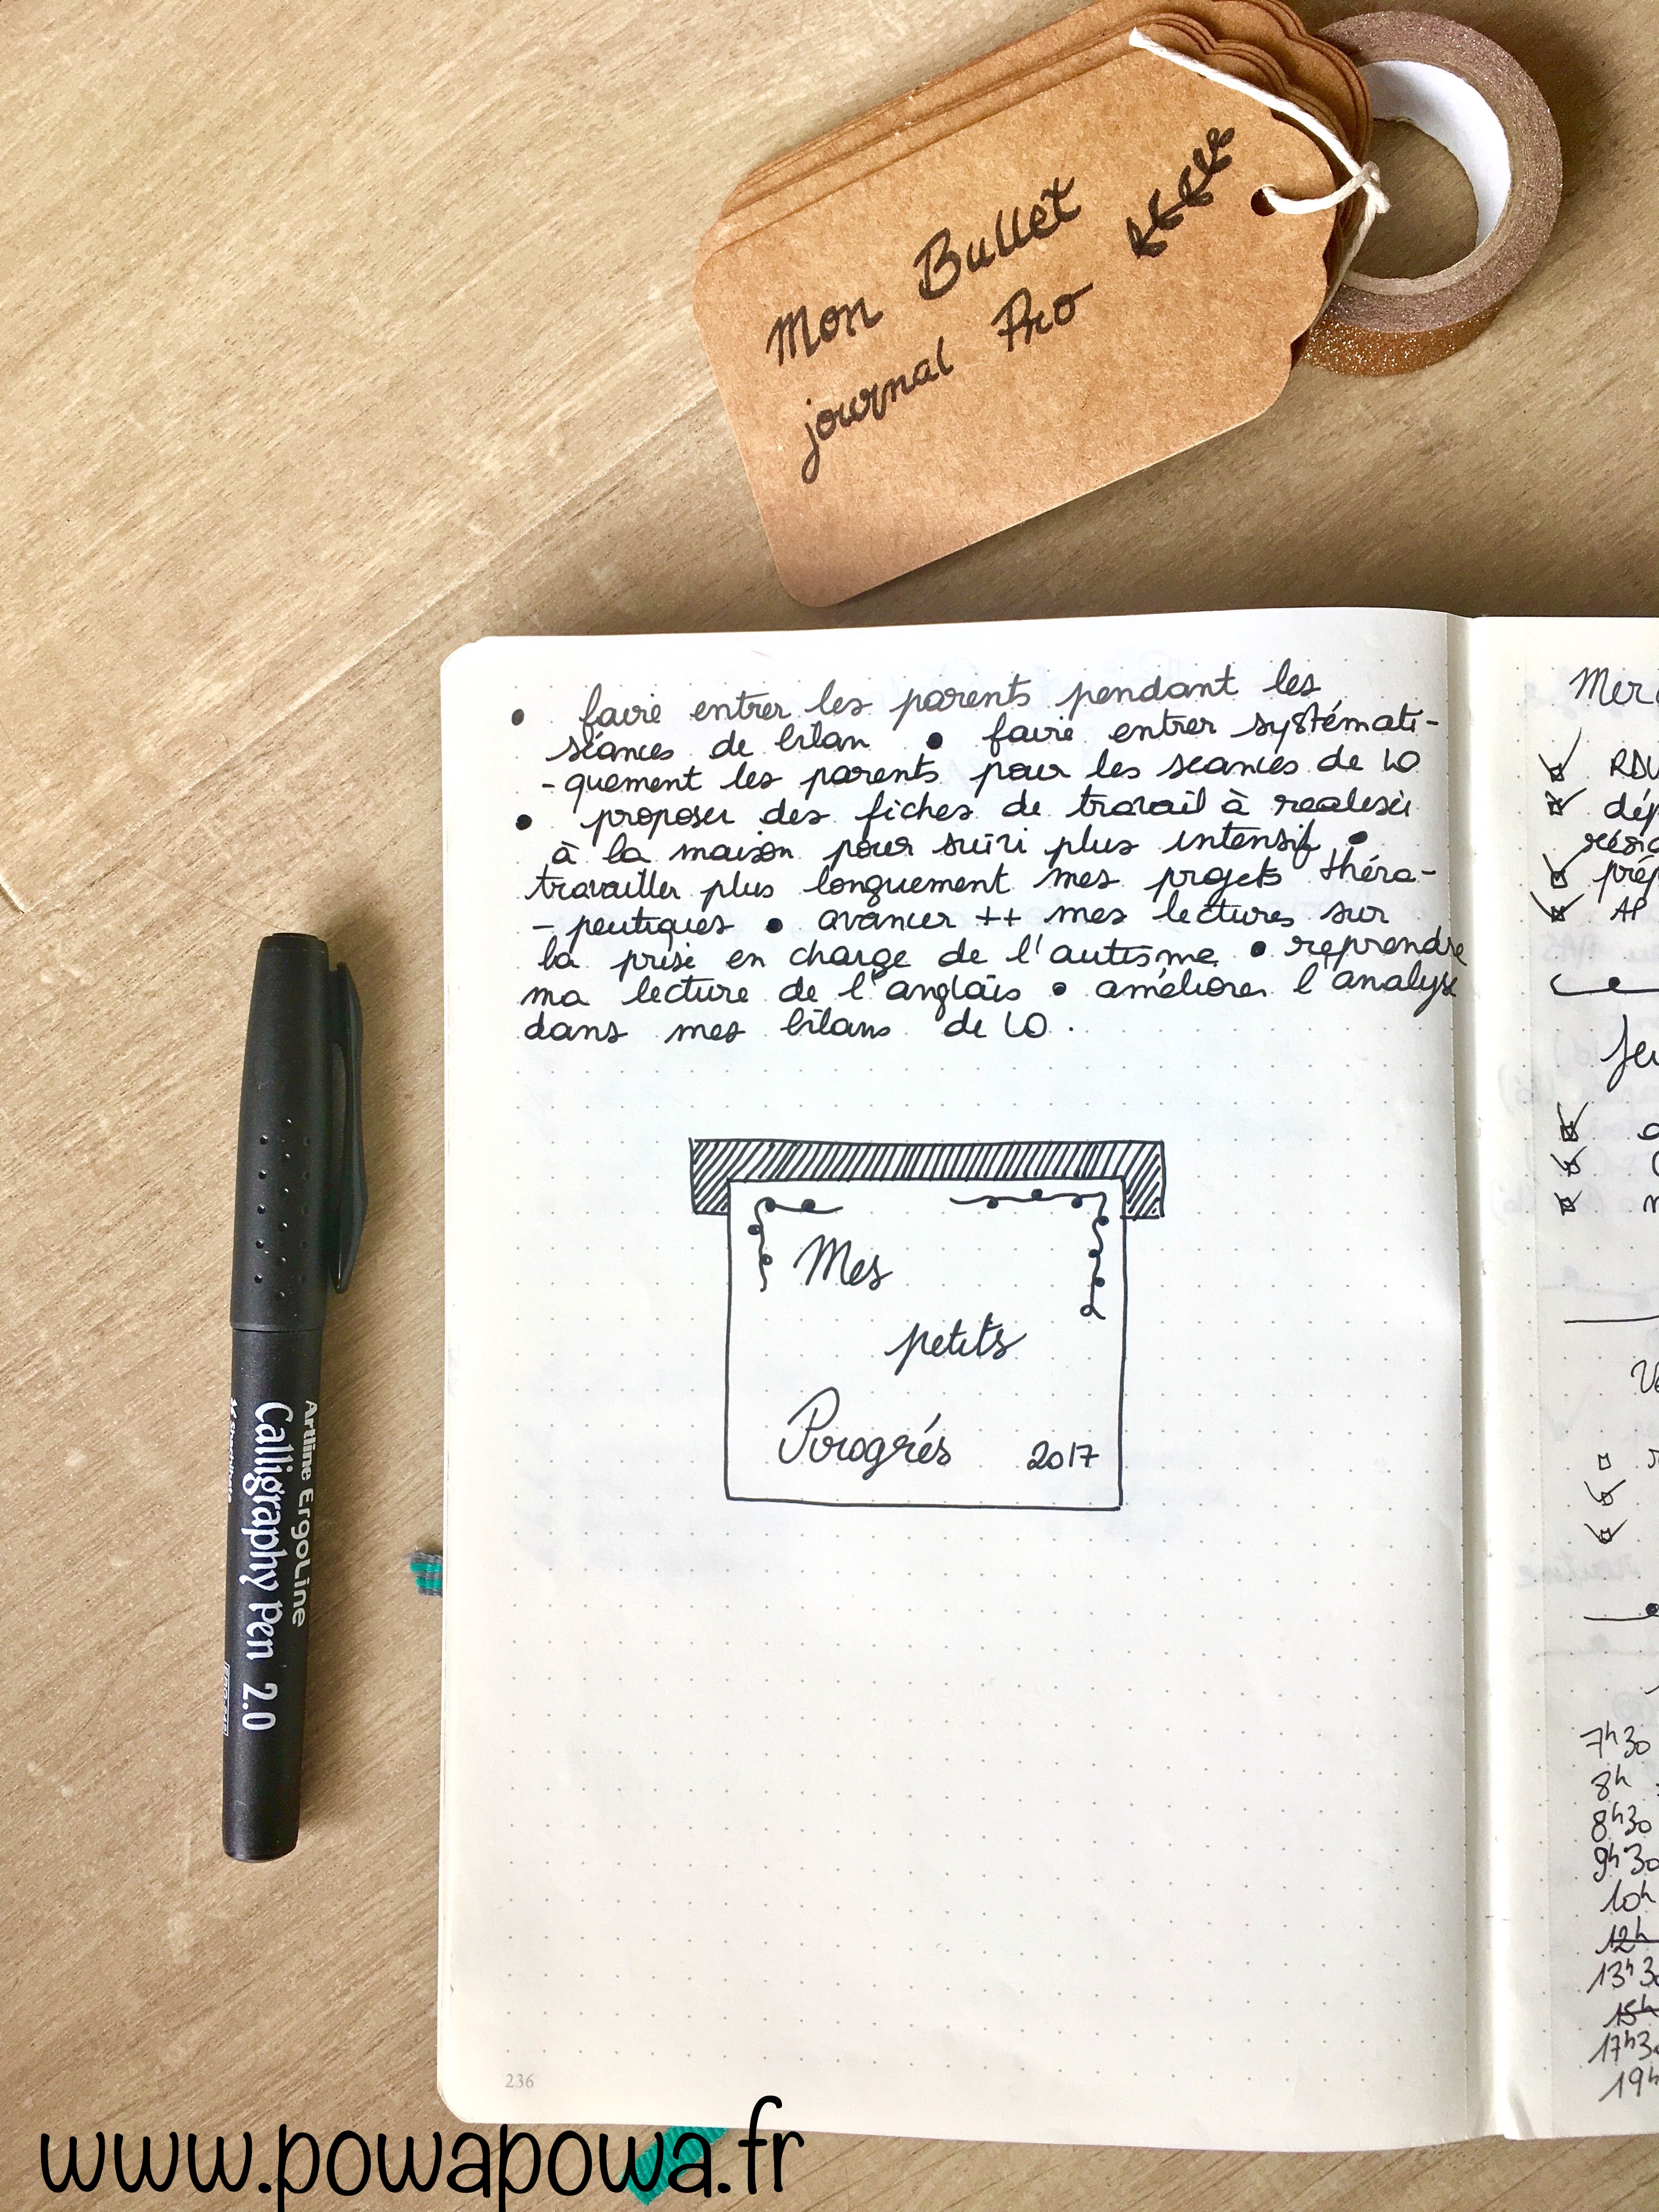 Mon Bullet
journal Pro
• faire entrer les parents pendant les
séances de bilan • faire entrer systémati-
-quement les parents pour les seances de LO
• proposer des fiches de travail à realiser
à la maison pour suivi plus intensif •
travailler plus longuement mes projets théra-
-peutiques • avancer ++ mes lectures sur
la prise en charge de l'autisme • reprendre
ma lecture de l'anglais • améliorer l'analyse
dans mes bilans de LO.
Mes
petits
Progrés 2017
236
Artline ErgoLine
Calligraphy Pen 2.0
Mer
RDV
dép
prép
AP
Jeu
7h30
8h
8h30
9h30
10h
12h
13h30
15h
17h30
19h
www.powapowa.fr